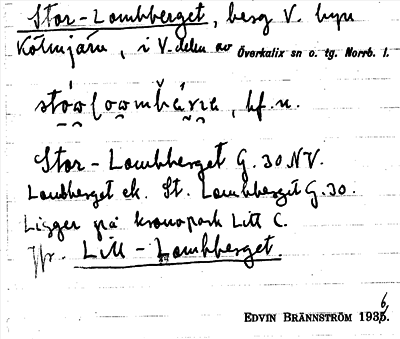 Stor-Lombberget, berg V. byn
Kölmjärv, i V. delen av Överkalix sn o. tg. Norrb. l.
bf. n.
Stor-Lombberget G. 30 NV.
Lombberget ek. St. Lombberget G. 30.
Ligger på kronopark Lill C.
Jfr. Lill-Lombberget.
EDVIN BRÄNNSTRÖM 1936.